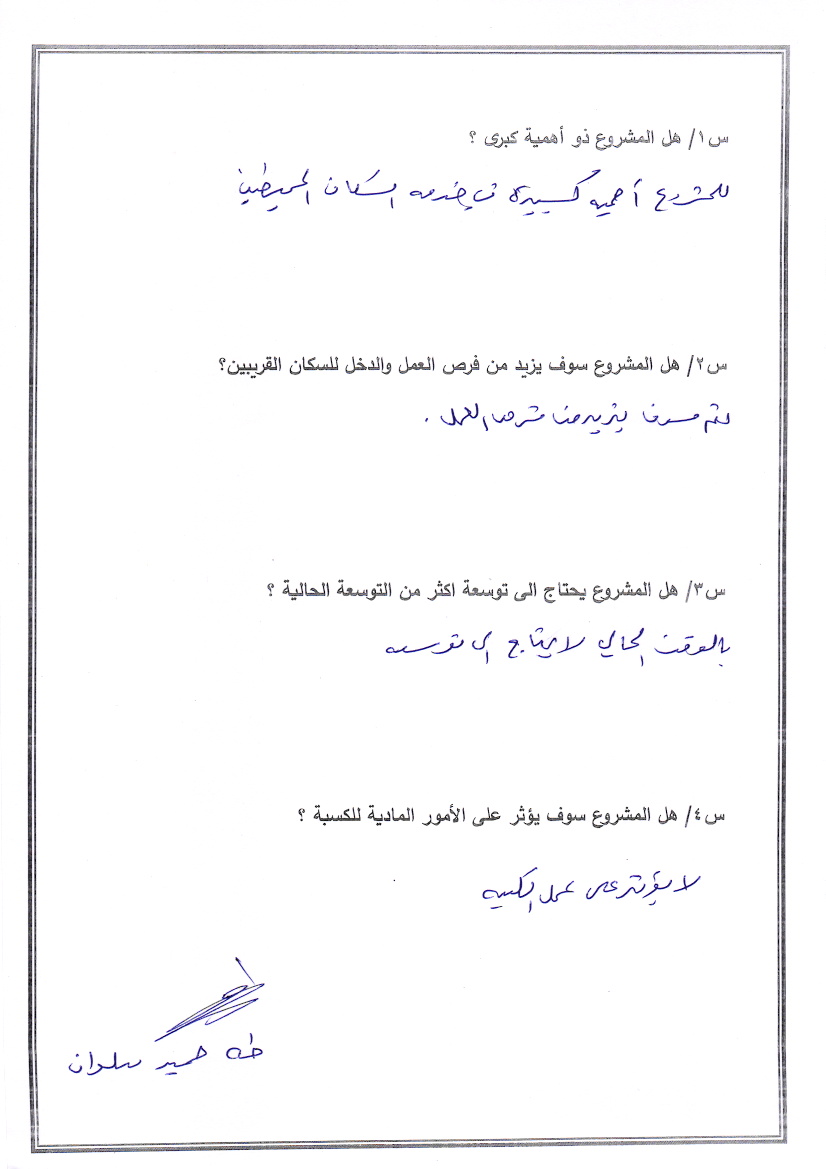 س١/ هل المشروع ذو أهمية كبرى ؟
للمشروع أهميه كبيرة في خدمه السكان المحيطين
س٢/ هل المشروع سوف يزيد من فرص العمل والدخل للسكان القريبين؟
نعم سوف يزيد من فرص العمل .
س٣/ هل المشروع يحتاج الى توسعة اكثر من التوسعة الحالية ؟
بالوقت الحالي لا يحتاج الى توسعه
س٤/ هل المشروع سوف يؤثر على الأمور المادية للكسبة ؟
لا يؤثر على عمل الكسبه
طه حميد سلوان